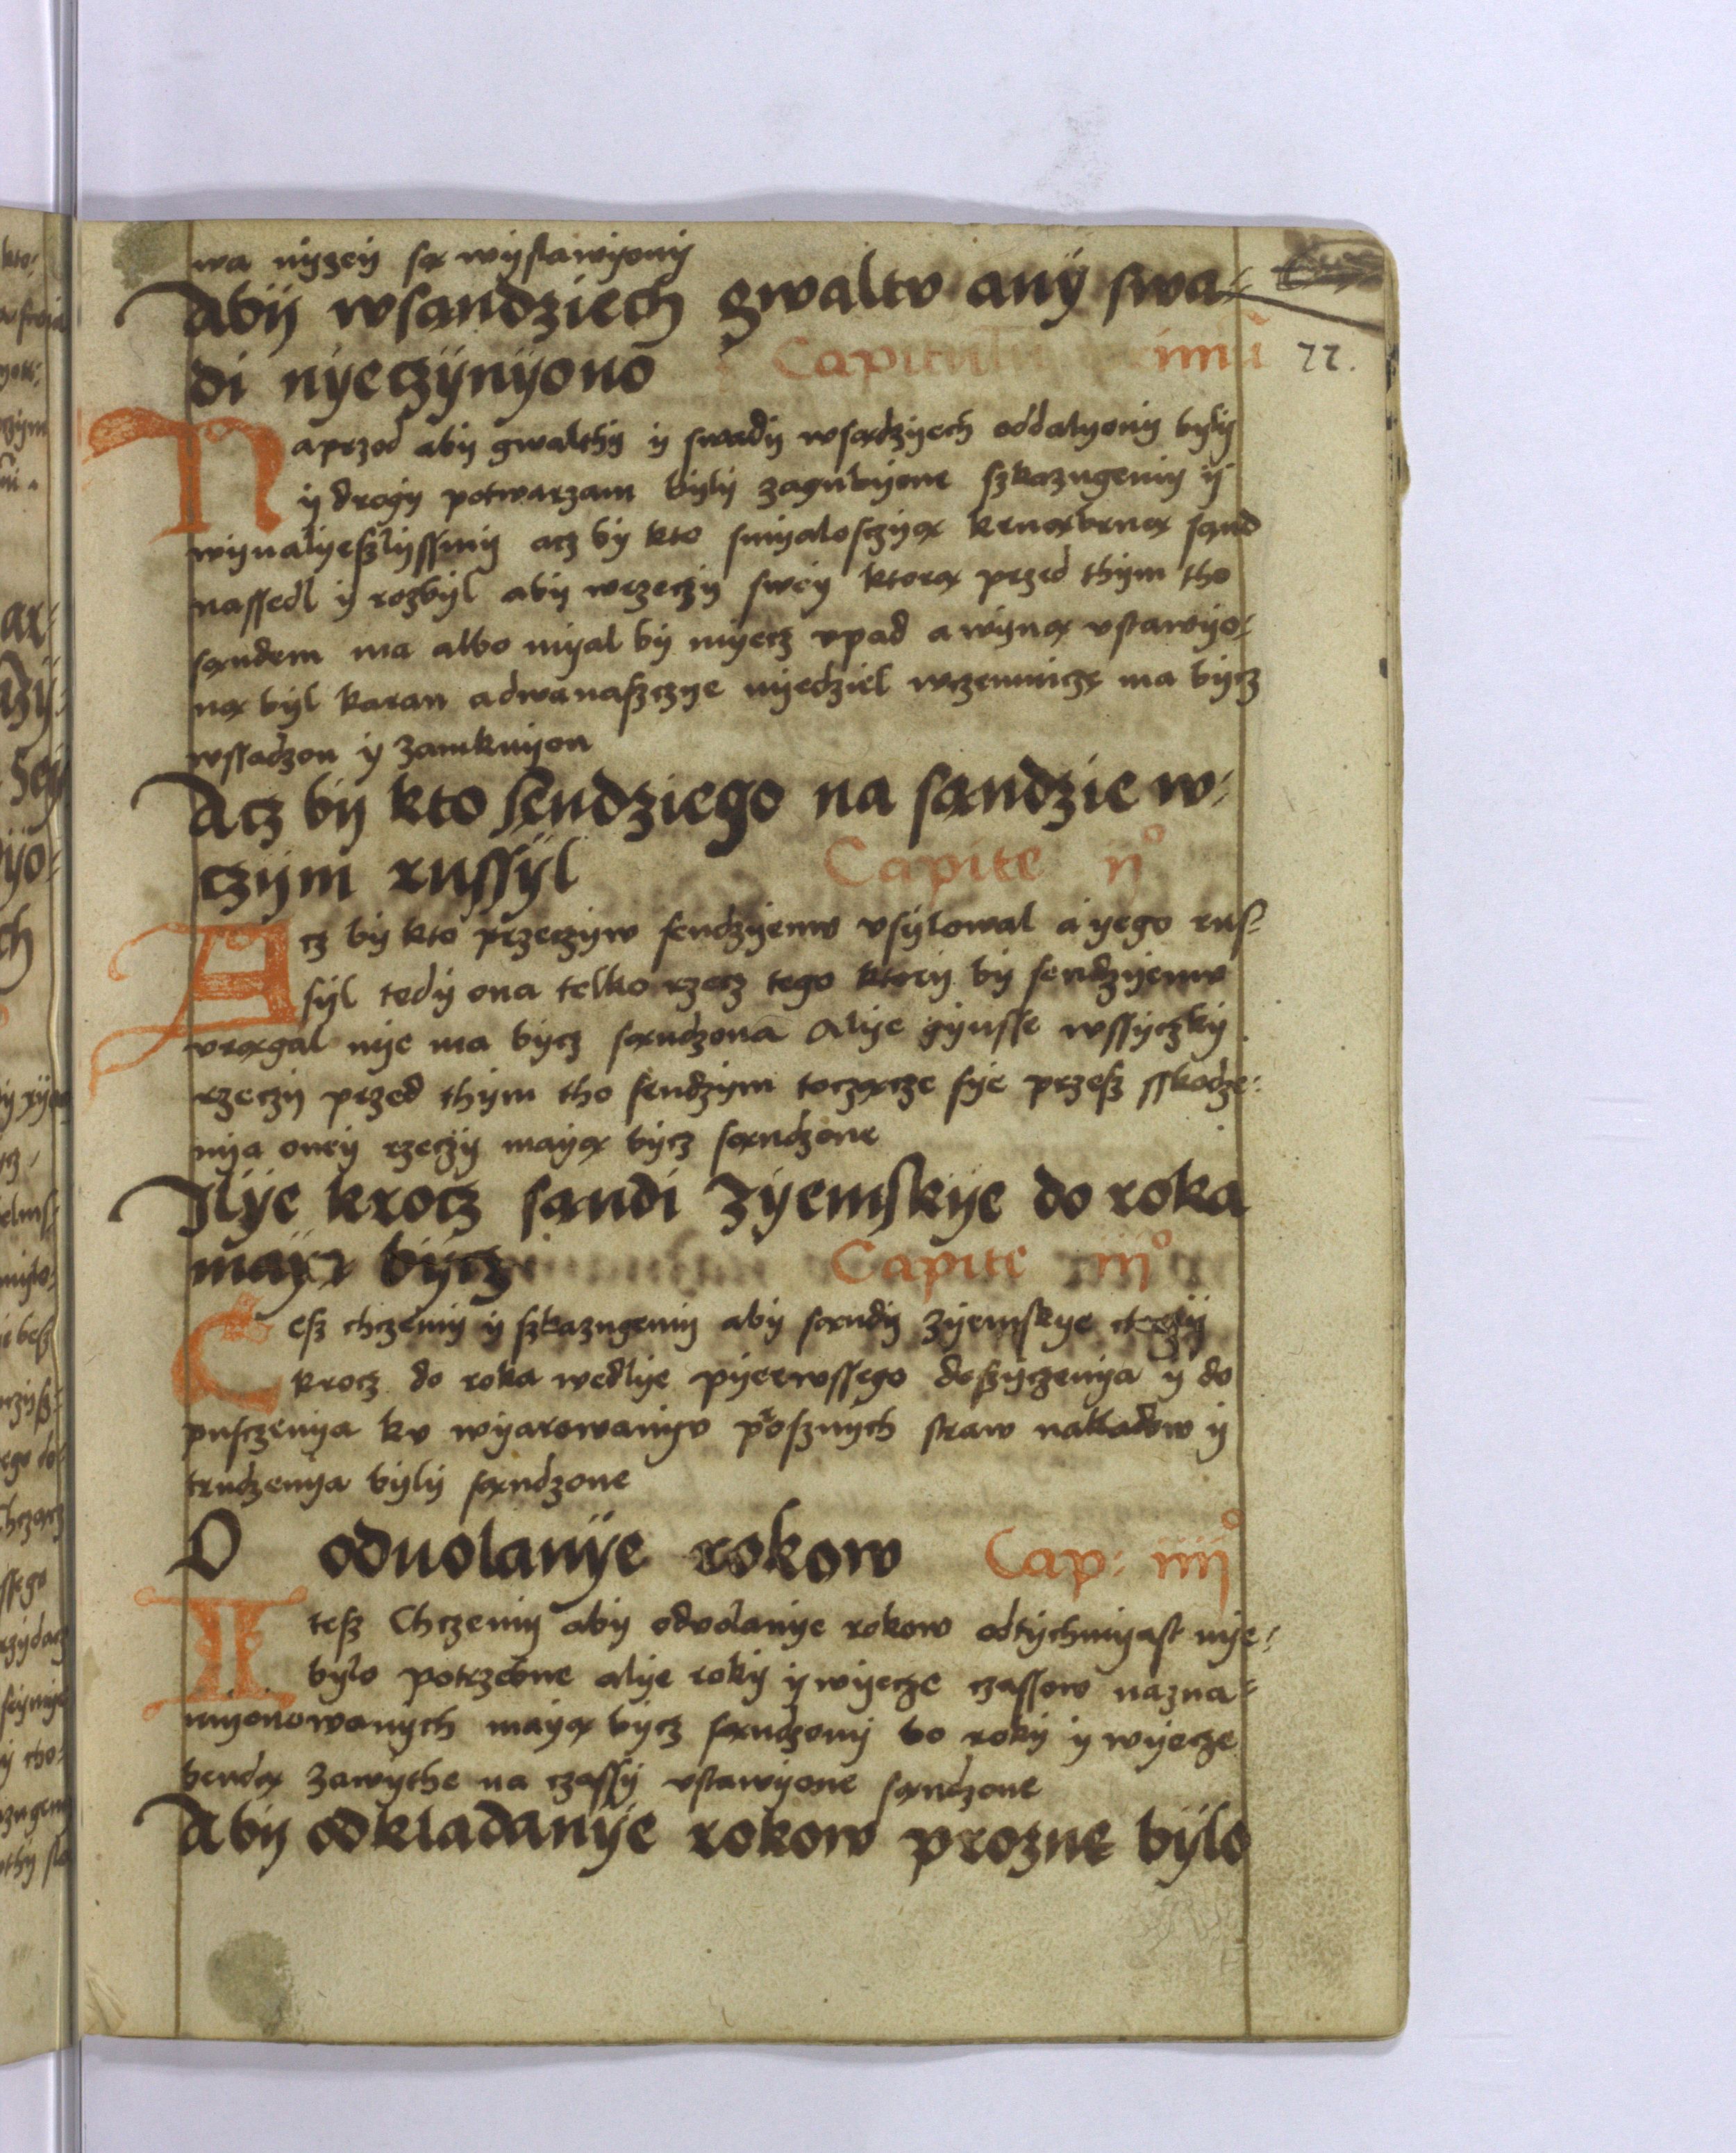 wa nyzey są wyslawyony
Abÿ wsandziech gwaltv anÿ swa-
di nÿeczÿnÿono Capitulũ
77.
Naprzod aby gwalthy y swady wsądzyech oddalyony były
y drogy potwarzam byly zagubyone szkazugemy y
wynalyeszlyssmy acz by kto smyalosczyą krnąbrną sąnd
nassedl y rozbyl aby wrzeczy swey ktorą przed thym tho
sąndem ma albo myal by myecz vpad a wyną vstawyo-
ną byl karan adwanasczye nyedziel wczemniczy ma bycz
wssadzon y zamknyon
Acz bÿ kto sendziego na sandzie w-
czÿm russÿl Capite ijº
Acz by kto przeczyw sendzyemv vsylowal a yego rus-
syl tedy ona telko rzecz tego ktory by sendzyemv
vrągal nye ma bycz sąndzona Alye gynsse wssyczky
rzeczy przed thym tho sendzym toczącze sye przesz sskodze-
nya oney rzeczy mayą bycz sąndzone
Jlÿe krocz sandi zÿemskÿe do roka
maÿą bÿcz Capite iijº
Cesz chczemy y szkazugemy aby sąndy zyemskye
krocz do roka wedlye pyerwssego doszyczenya y do
pusczenya kv wyarowanyv proznych straw nakladow y
trudzenya byly sąndzone
O oduolanÿe rokow Cap: iiijº
Itesz Chczemy aby odvolanye rokow odtychmyast nye-
bylo potrzebne alye roky y wyecze czassow nazna-
myonowanych mayą bycz sąndzony bo roky y wyecze
bendą zawythe na czassy vstawyone sąndzone
Abÿ odkladanÿe rokow prozne bÿlo